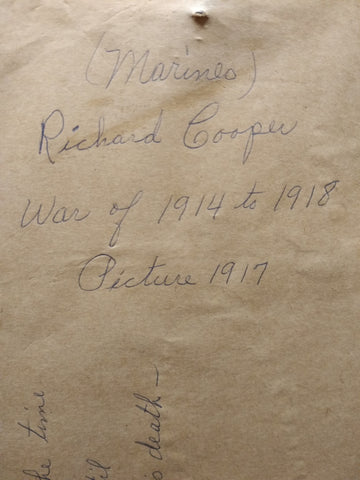 (Marines)
Richard Cooper
War of 1914 to 1918
Picture 1917
he time
til
s death –